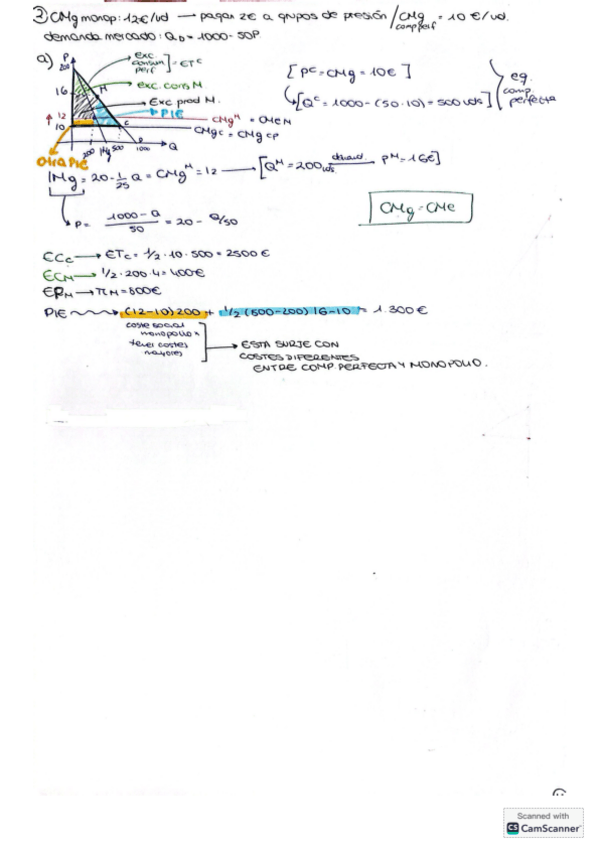 3 CMg monop: 12€/ud → pagar 2€ a grupos de presión / CMg comp perf = 10 €/ud.
demanda mercado: QD = 1000 - 50P
a)
P
200
16
12
10
exc. consum perf ] = ETC
exc. cons M
Exc prod M.
PIE
CMgM = CMeM
CMgC = CMg CP
M
C
D
200
IMg
500
1000
Q
Otra PIE
[PC = CMg = 10€]
[QC = 1000 - (50·10) = 500 uds]
eq. comp. perfecta
IMg = 20 - 1/25 Q = CMgM = 12 → [QM = 200 uds demand PM = 16€]
P = 1000 - Q / 50 = 20 - Q/50
CMg = CMe
ECC → ETC = 1/2 · 10 · 500 = 2500 €
ECM → 1/2 · 200 · 4 = 400€
EPM → πM = 800€
PIE → (12-10) 200 + 1/2 (500-200) 16-10 = 1.300 €
coste social
monopolio x
tener costes
mayores
→ ESTA SURJE CON
COSTES DIFERENTES
ENTRE COMP. PERFECTA Y MONOPOLIO.
Scanned with
CS CamScanner